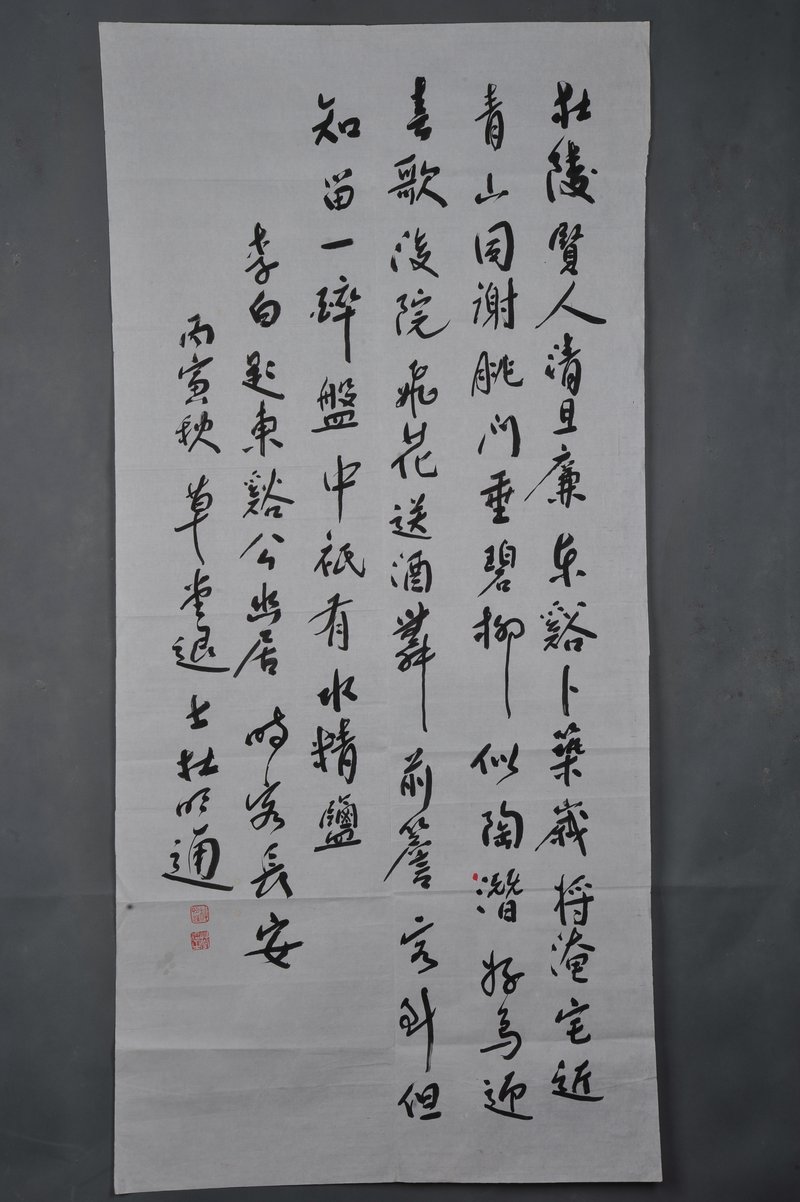 杜陵賢人清且廉東谿卜築歲將淹宅近
青山同謝朓門垂碧柳似陶潛好鳥迎
春歌後院飛花送酒舞前簷客到但
知留一醉盤中祇有水精鹽
李白題東谿公幽居 時客長安
丙寅秋 草堂退士杜明通